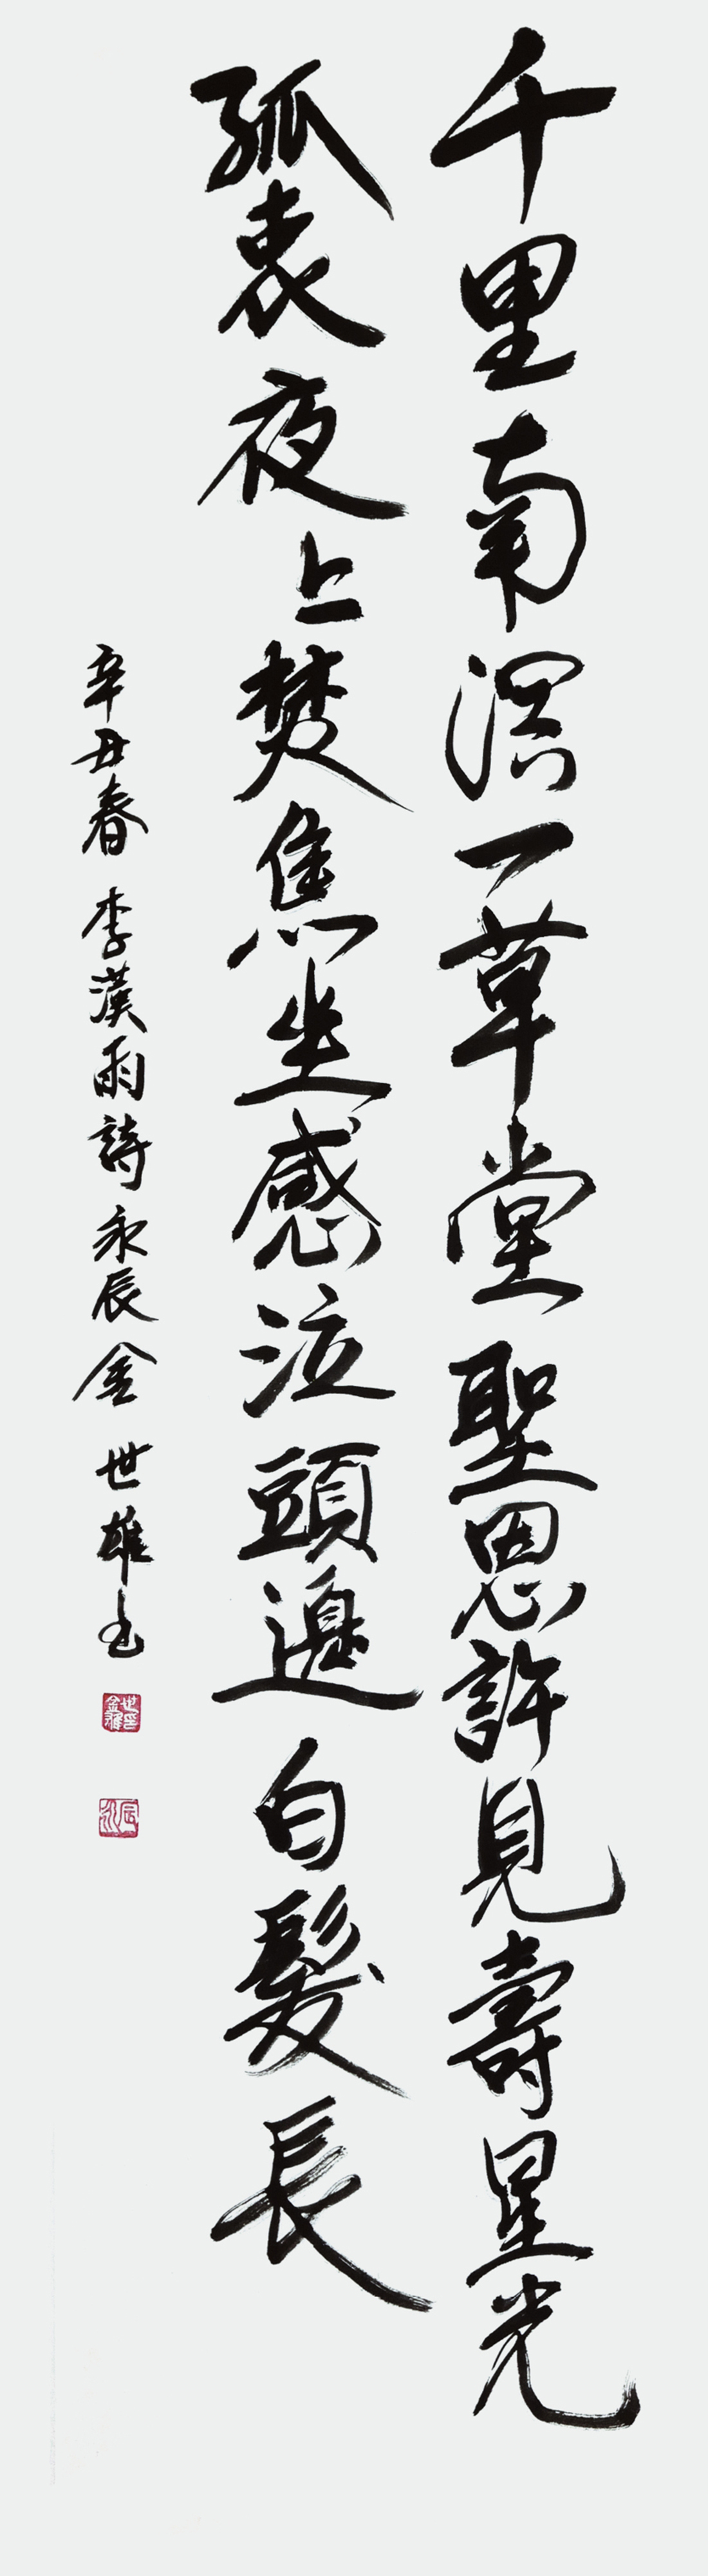 千里南溟一草堂聖恩許見壽星光
孤衷夜上焚焦坐感泣頭邊白髮長
辛丑春 李漢雨詩 永辰 金世雄書
金世雄印
永辰